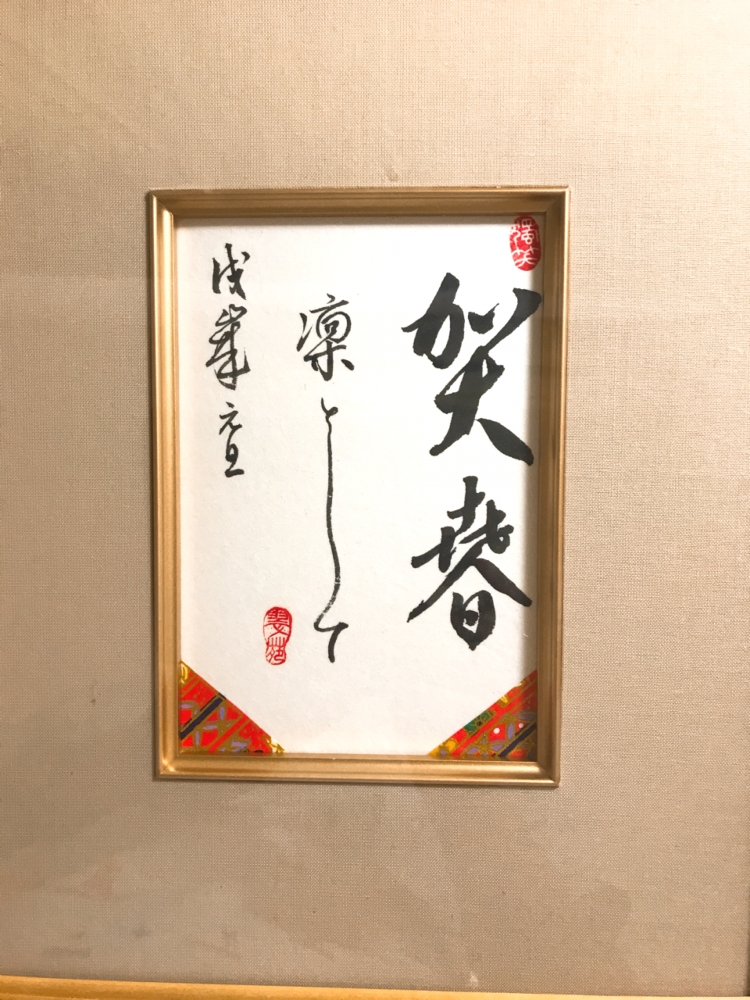 賀春
凛として
戌歳 元旦